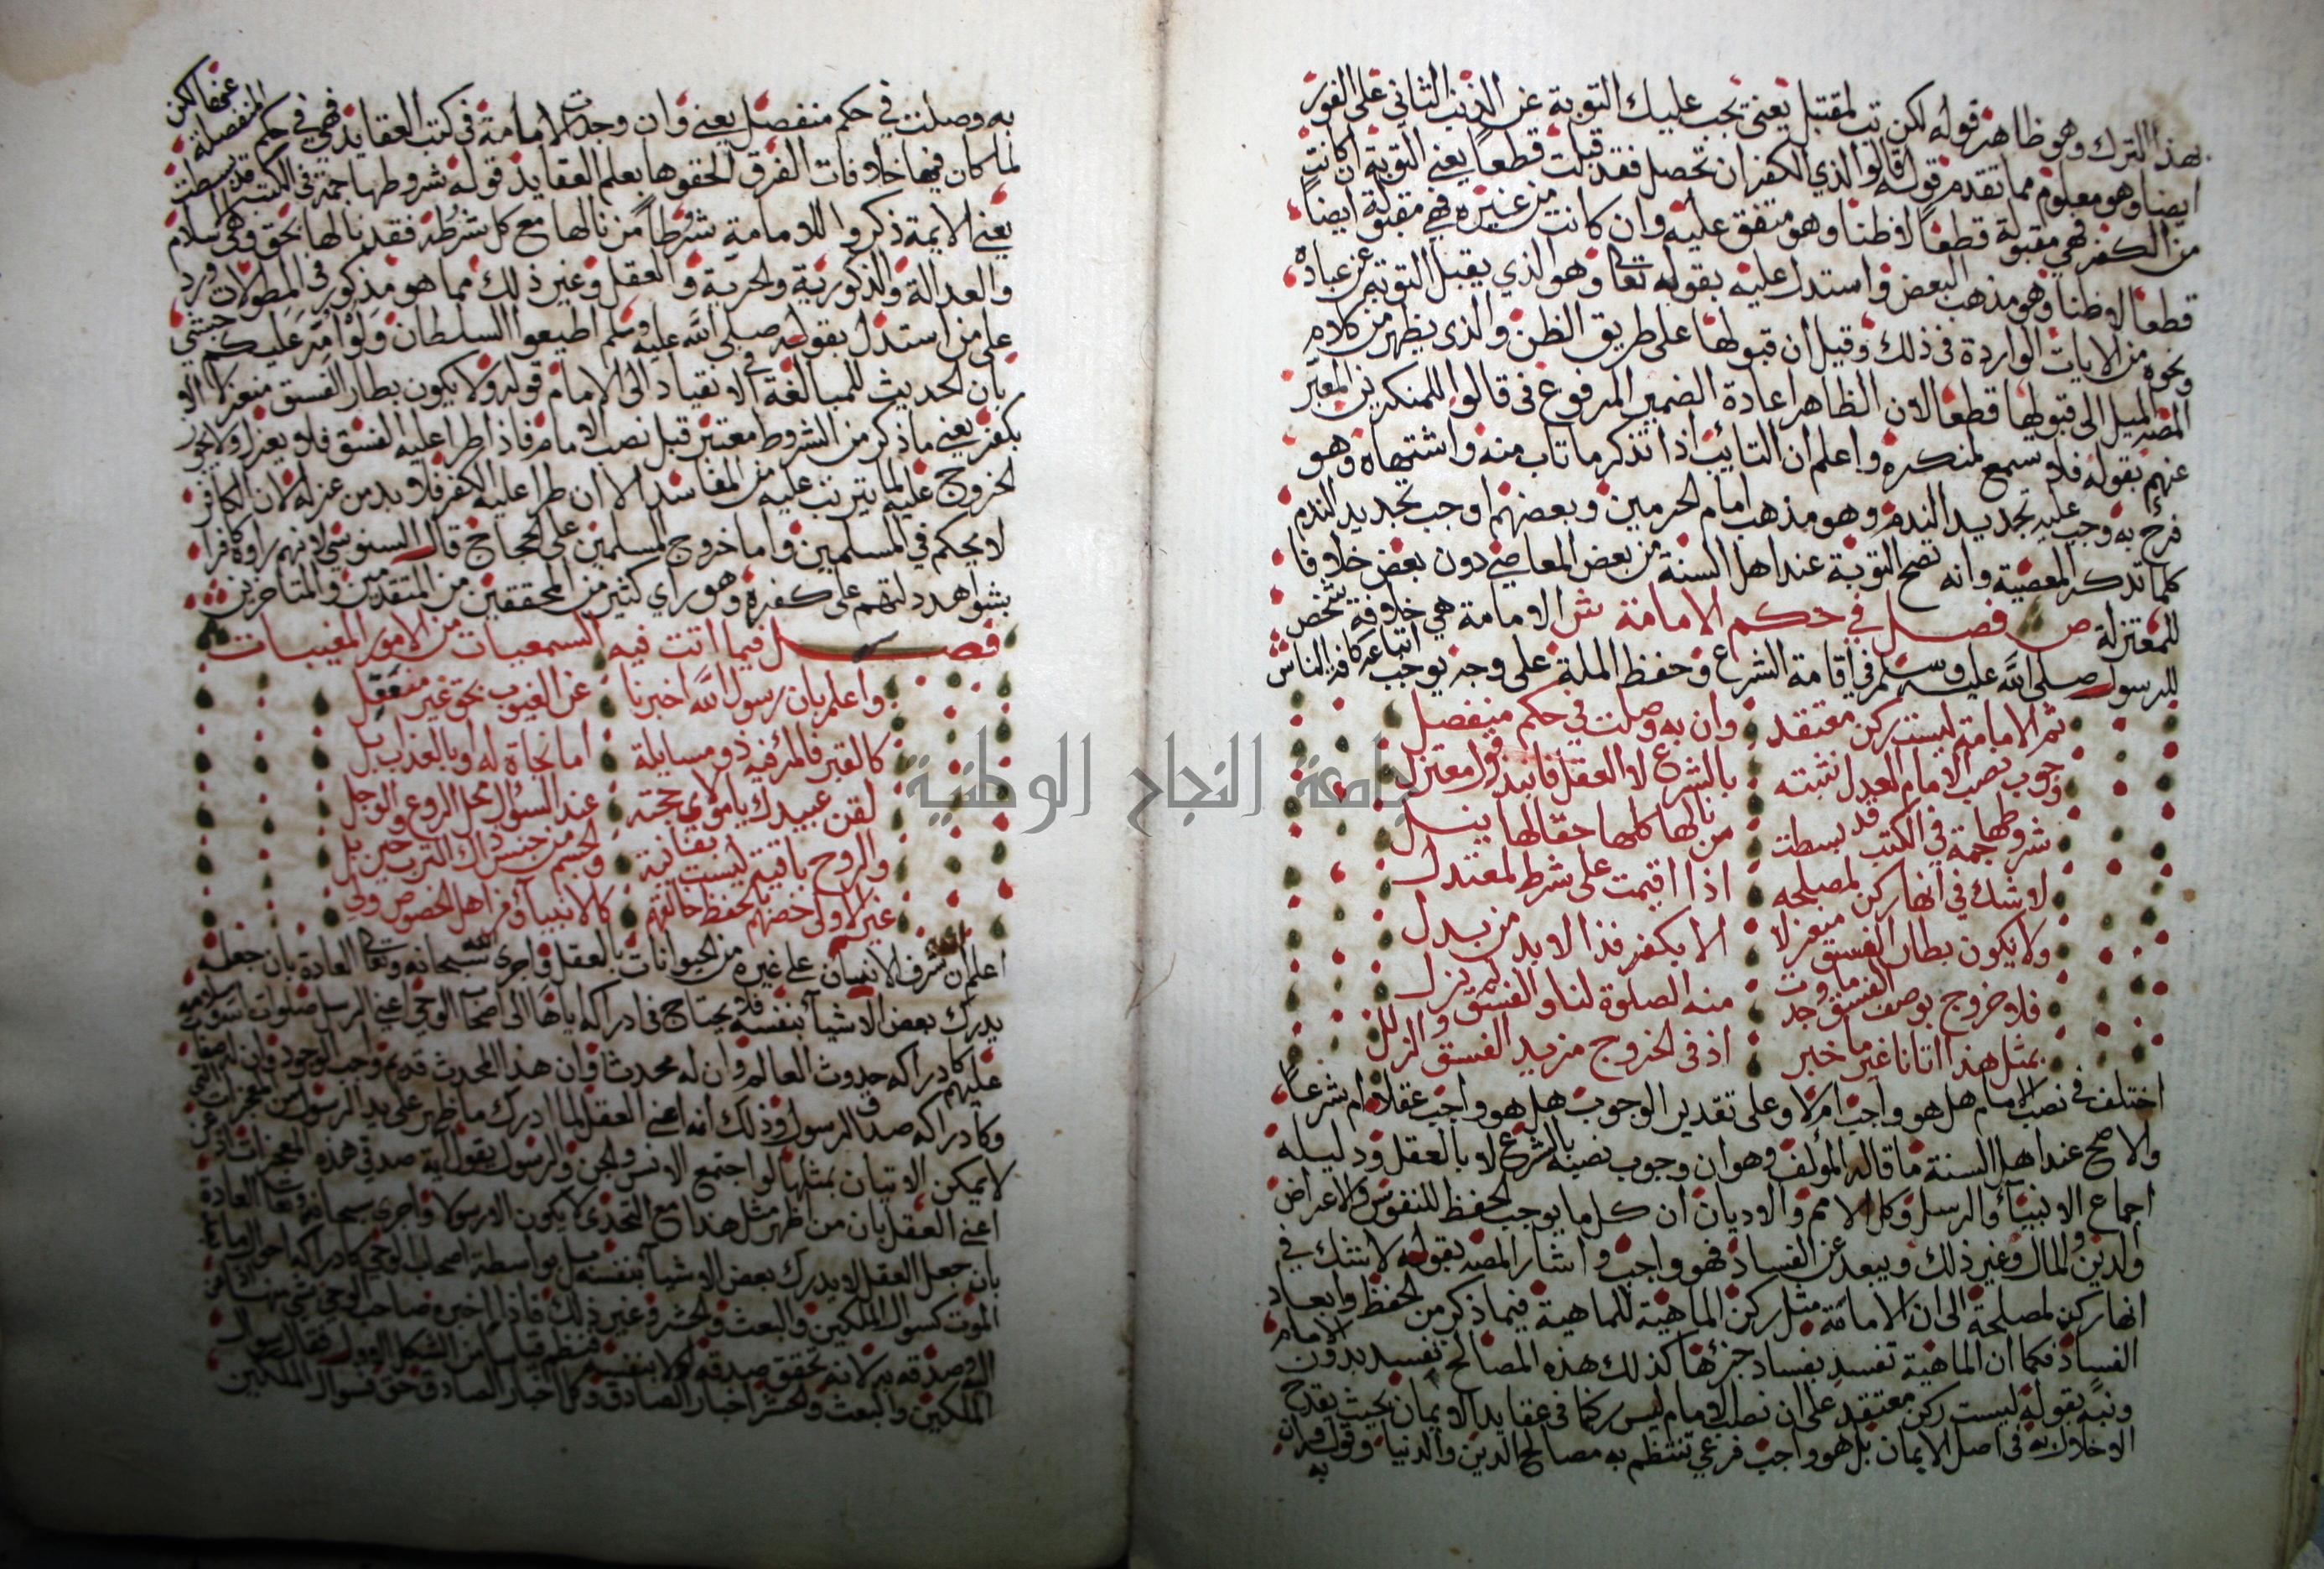 بهذا الترك وهو ظاهر قوله لكن تب لمقتبل يعني تجب عليك التوبة عن الذنب الثاني على الفور
ايضا وهو معلوم مما تقدم قوله قالوا الذي الكفر ان تحصل فقد قبلت قطعا يعني التوبة ان كانت
من الكفر فهي مقبولة قطعا لا ظنا وهو متفق عليه وان كانت من غيره فهي مقبولة ايضا
قطعا لا ظنا وهو مذهب البعض واستدل عليه بقوله تعا وهو الذي يقبل التوبة عن عباده
ونحوه من الايات الواردة في ذلك وقيل ان قبولها على طريق الظن والذي يظهر من كلام
المصـ الميل الى قبولها قطعا لان الظاهر اعادة الضمير المرفوع في قالوا للمنكرين المعبر
عنهم بقوله فلا سمع لمنكره واعلم ان التائب اذا تذكر ما تاب منه واشتهاه وهو
فرح به وجب عليه تجديد الندم وهو مذهب امام الحرمين وبعضهم اوجب تجديد الندم
كلما تذكر المعصية وانه تصح التوبة عند اهل السنة من بعض المعاصي دون بعض خلافا
للمعتزلة ص فصل في حكم الامامة ش الامامة هي خلافة شخص
للرسول صلى الله عليه وسلم في اقامة الشرع وحفظ الملة على وجه يوجب اتباعه كافة الناس
ثم الامامة ليست ركن معتقد وان به وصلت في حكم منفصل
وجوب نصب الامام العدل نثبته بالشرع لا العقل فانبد قول معتزل
شروطها جمة في الكتب قد بسطت من نالها كلها حقا لها ينل
لا شك في انها ركن لمصلحه اذا اقيمت على شرط لمعتدل
ولا يكون بطار الفسق منعزلا الا بكفر فذا لا بد من بدل
فلا خروج بوصف الفسق جد منه الصلوة لنا والفسق لم يزل
بمثل هذا اتانا غير ما خبر اذ في الخروج مزيد الفسق والزلل
اختلف في نصب الامام هل هو واجب ام لا وعلى تقدير الوجوب هل هو واجب عقلا ام شرعا
والاصح عند اهل السنة ما قاله المؤلف وهو ان وجوب نصبه بالشرع لا بالعقل ودليله
اجماع الانبيآ والرسل وكل الامم والاديان ان كل ما يوجب الحفظ للنفوس والاعراض
والدين والمال وغير ذلك ويبعد عن الفساد فهو واجب واشار المصـ بقوله لا شك في
انها ركن لمصلحة الى ان الامامة مثل ركن الماهية للماهية فيما ذكر من الحفظ وابعاد
الفساد فكما ان الماهية تفسد بفساد جزئها كذلك هذه المصالح تفسد بدون الامام
ونبه بقوله ليست ركن معتقد على ان نصب الامام ليس ركنا في عقايد الايمان بحيث يقدح
الاخلال به في اصل الايمان بل هو واجب فرعي تنتظم به مصالح الدين والدنيا وقوله وان
به
به وصلت في حكم منفصل يعني وان وجدت الامامة في كتب العقايد فهي في حكم المنفصلة عنها لكن
لما كان فيها خلافات الفرق الحقوها بعلم العقايد قوله شروطها جمة في الكتب قد بسطت
يعني الايمة ذكروا للامامة شروطا من نالها مع كل شرط فقد نالها بحق وهي سلام
والعدالة والذكورية والحرية والعقل وغير ذلك مما هو مذكور في المطولات ورد
على من استدل بقوله صلى الله عليه وسلم اطيعوا السلطان ولو امر عليكم حبشي
بان الحديث للمبالغة في الانقياد الى الامام قوله ولا يكون بطار الفسق منعزلا الا
بكفر يعني ما ذكر من الشروط معتبر قبل نصب الامام فاذا طرا عليه الفسق فلا يعزل ولا يجوز
الخروج عليه لما يترتب عليه من المفاسد الا ان طرا عليه الكفر فلا بد من عزله لان الكافر
لا يحكم في المسلمين واما خروج المسلمين على الحجاج قال السنوسي لانهم راوه كافرا
بشواهد دلتهم على كفره وهو راي كثير من المحققين من المتقدمين والمتاخرين
فصل فيما اتت فيه السمعيات من الامور المغيبات
واعلم بان رسول الله اخبرنا عن الغيوب بحق غير مفتعل
كالقبر فالمرء فيه ذو مسايلة اما نجاة له او بالعذاب بل
لقن عبيدك يا مولاي حجته عند السؤال محل الروع والوجل
والروح باقية ليست بفانية والجسم من جنس ذاك الترب حين بل
غير الاولى خصهم بالحفظ خالقهم كالانبيا ومن اهل الخصوص ولي
اعلم ان شرف الانسان على غيره من الحيوانات بالعقل واجرى الله سبحانه وتعا العادة بان جعله
يدرك بعض الاشيآ بنفسه فلا يحتاج في ادراكه اياها الى اصحاب الوحي اعني الرسل صلوات الله وسلامه
عليهم كادراكه حدوث العالم وان له محدثا وان هذا المحدث قديم واجب الوجود وان له صفات
وكادراكه صدق الرسول وذلك انه اعني العقل لما ادرك ما ظهر على يد الرسول من المعجزات التي
لا يمكن الاتيان بمثلها لو اجتمع الانس والجن والرسول يقول اية صدقي هذه المعجزات اذعن
اعني العقل بان من اظهر مثل هذا مع التحدي لا يكون الا رسولا واجرى سبحانه وتعا العادة
بان جعل العقل لا يدرك بعض الاشيآ بنفسه بل بواسطة اصحاب الوحي كادراكه احوال ما بعد
الموت كسوال الملكين والبعث والحشر وغير ذلك فاذا اخبره صاحب الوحي بشي منها اذعن
اليه وصدقه به لانه تحقق صدقه اولا بنفسه فننظم قياسا من الشكل الاول فقال سوال
الملكين والبعث والحشر اخبار الصادق وكل اخبار الصادق حق فسوال الملكين
جامعة النجاح الوطنية